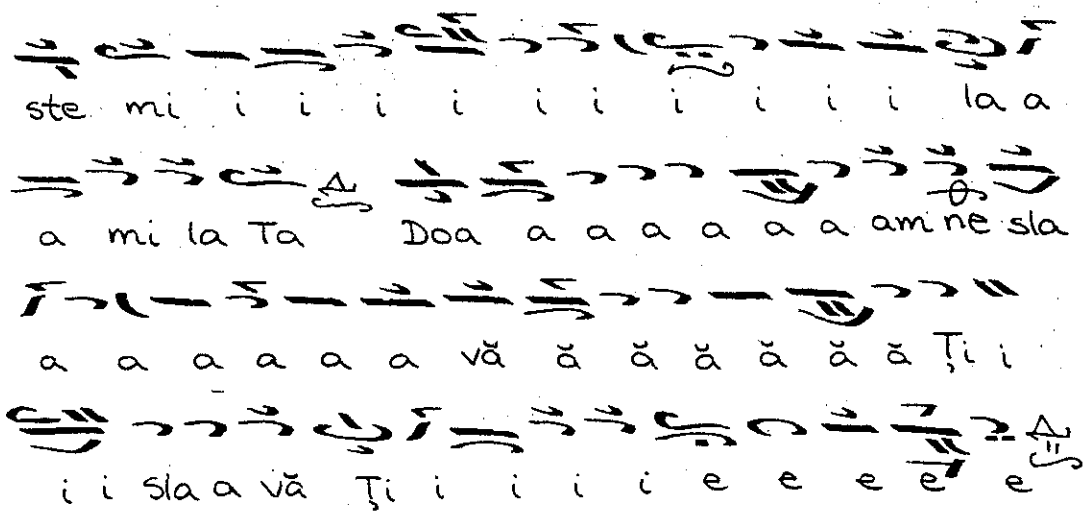 ste mi i i i i i i i i i i la a
a mi la Ta Doa a a a a a a am ne sla
a a a a a a vă ă ă ă ă ă ă Ți i
i i sla a vă Ți i i i i e e e e e